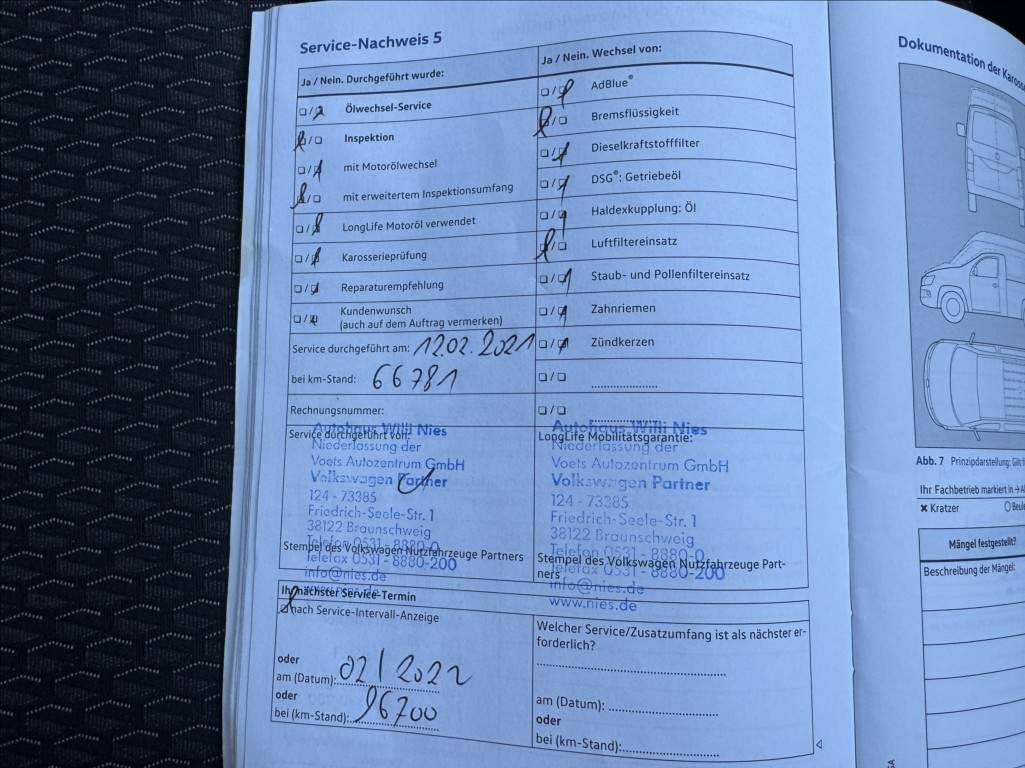 Service-Nachweis 5
Ja / Nein. Durchgeführt wurde:
Ölwechsel-Service
Inspektion
mit Motorölwechsel
mit erweitertem Inspektionsumfang
LongLife Motoröl verwendet
Karosserieprüfung
Reparaturempfehlung
Kundenwunsch
(auch auf dem Auftrag vermerken)
Service durchgeführt am: 12.02.2021
bei km-Stand: 66781
Rechnungsnummer:
Service durchgeführt von:
Autohaus Willi Nies
Niederlassung der
Voets Autozentrum GmbH
Volkswagen Partner
124 - 73385
Friedrich-Seele-Str. 1
38122 Braunschweig
Telefon 0531 - 8880-0
Telefax 0531 - 8880-200
info@nies.de
www.nies.de
Stempel des Volkswagen Nutzfahrzeuge Partners
Ja / Nein. Wechsel von:
AdBlue®
Bremsflüssigkeit
Dieselkraftstofffilter
DSG®: Getriebeöl
Haldexkupplung: Öl
Luftfiltereinsatz
Staub- und Pollenfiltereinsatz
Zahnriemen
Zündkerzen
LongLife Mobilitätsgarantie:
Autohaus Willi Nies
Niederlassung der
Voets Autozentrum GmbH
Volkswagen Partner
124 - 73385
Friedrich-Seele-Str. 1
38122 Braunschweig
Telefon 0531 - 8880-0
Telefax 0531 - 8880-200
info@nies.de
www.nies.de
Stempel des Volkswagen Nutzfahrzeuge Part-
ners
Ihr nächster Service-Termin
nach Service-Intervall-Anzeige
oder
am (Datum): 02/2022
oder
bei (km-Stand): 96700
Welcher Service/Zusatzumfang ist als nächster er-
forderlich?
am (Datum):
oder
bei (km-Stand):
Dokumentation der
Abb. 7 Prinzipdarstellung:
Ihr Fachbetrieb markiert in
Kratzer
Mängel festgestellt?
Beschreibung der Mängel: